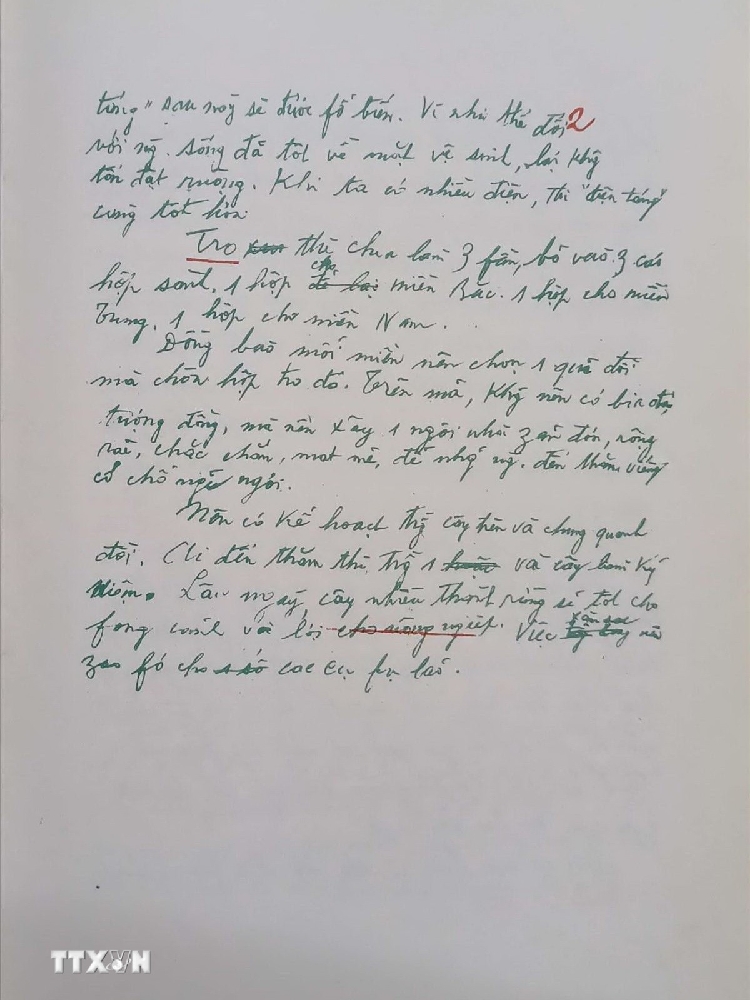 táng" sau này sẽ được fổ biến. Vì như thế đối 2
với ng. sống đã tốt về mặt vệ sinh, lại khg
tốn đất ruộng. Khi ta có nhiều điện, thì "điện táng"
càng tốt hơn.
Tro thì chia làm 3 fần, bỏ vào 3 cái
hộp sành. 1 hộp cho miền Bắc. 1 hộp cho miền
Trung. 1 hộp cho miền Nam.
Đồng bào mỗi miền nên chọn 1 quả đồi
mà chôn hộp tro đó. Trên mả, khg nên có bia đá,
tượng đồng, mà nên xây 1 ngôi nhà zản đơn, rộng
rãi, chắc chắn, mát mẻ, để nhg ng. đến thăm viếng
có chỗ nghỉ ngơi.
Nên có kế hoạch trg cây trên và chung quanh
đồi. Ai đến thăm thì trg 1 và cây làm kỷ
niệm. Lâu ngày, cây nhiều thành rừng sẽ tốt cho
fong cảnh và lợi cho nông nghiệp. Việc săn sóc nên
zao fó cho các cụ fụ lão.
TTXVN